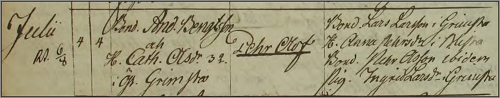 Julii
6/8 4 4
Bond. And. Bengtsson
och
H. Cath. Olsdr 32.
i Gr. Grimstad
Pehr Olof
Bond. Lars Larsson i Grimsta
H. Anna Pehrsdr i
Bond. Olsson ibidem
Pig. Ingrid Larsdr i Grimsta